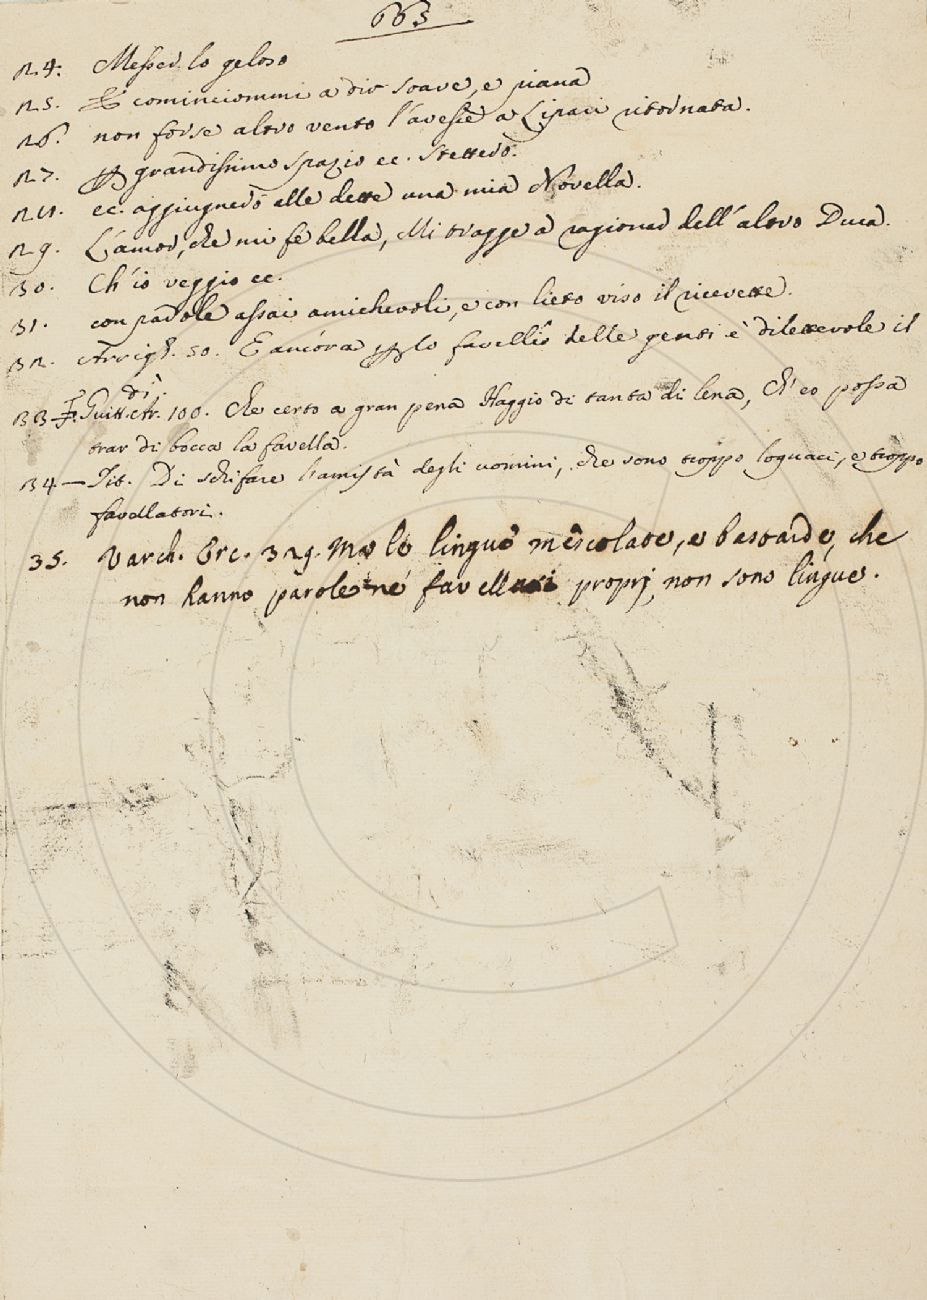 663
24. Messer lo geloso
25. E cominciommi a dir soave, e piana
26. non forse altro vento l'avesse a Lipari ritornata.
27. grandissimo spazio ec. stettero.
28. ec. aggiugnerò alle dette una mia Novella.
29. L'amor, che mi fè bella, Mi tragge a ragionar dell'altro Duca.
30. Ch'io veggio ec.
31. con parole assai amichevoli, e con lieto viso il ricevette.
32. Arrigh. 50. E ancóra lo favellío delle genti è dilettevole il
dì
33 Guitt. 100. Che certo a gran pena Haggio di tanta di lena, Ch'eo possa
trar di bocca la favella.
34 — Tit. Di schifare l'amistà degli uomini, che sono troppo loquaci, e troppo
favellatori.
35. Varch. Erc. 329. Ma le lingue mescolate, e bastarde, che
non hanno parole, né favellari proprj, non sono lingue.